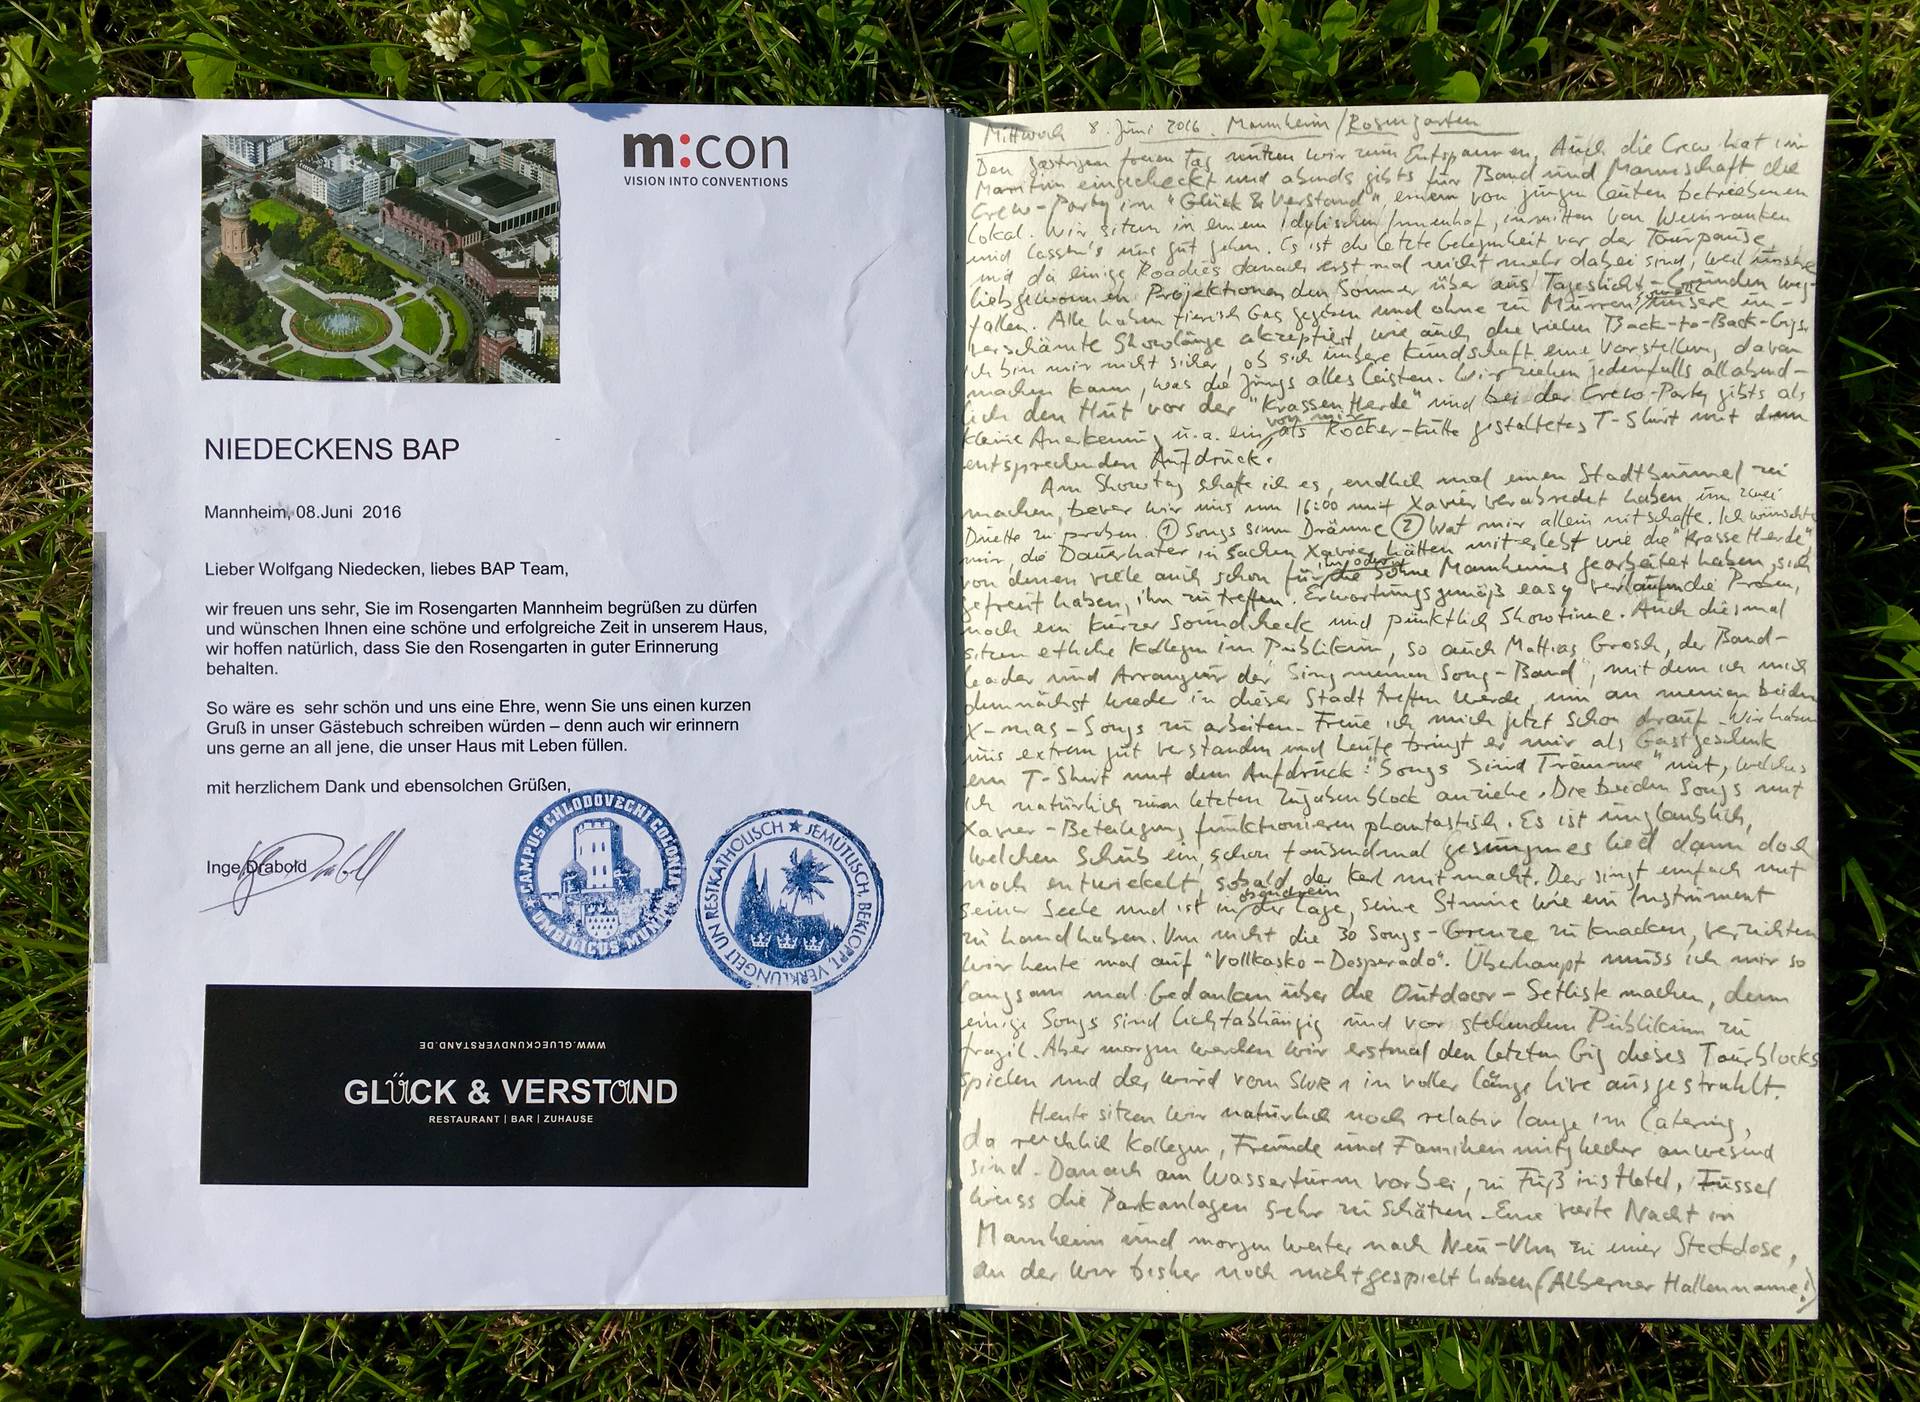 m:con
VISION INTO CONVENTIONS
NIEDECKENS BAP
Mannheim, 08.Juni 2016
Lieber Wolfgang Niedecken, liebes BAP Team,
wir freuen uns sehr, Sie im Rosengarten Mannheim begrüßen zu dürfen
und wünschen Ihnen eine schöne und erfolgreiche Zeit in unserem Haus,
wir hoffen natürlich, dass Sie den Rosengarten in guter Erinnerung
behalten.
So wäre es sehr schön und uns eine Ehre, wenn Sie uns einen kurzen
Gruß in unser Gästebuch schreiben würden – denn auch wir erinnern
uns gerne an all jene, die unser Haus mit Leben füllen.
mit herzlichem Dank und ebensolchen Grüßen,
Inge Drabold
CAMPUS CHLODOVECHI COLONIA
UMBILICUS MUNDI
JEMÜTLISCH, BEKLOPPT, VERKLÜNGELT UN RESTKATHOLISCH
WWW.GLUECKUNDVERSTAND.DE
GLÜCK & VERSTAND
RESTAURANT | BAR | ZUHAUSE
Mittwoch 8. Juni 2016. Mannheim/Rosengarten
Den gestrigen freien Tag nutzen wir zum Entspannen. Auch die Crew hat im
Maritim eingecheckt und abends gibts für Band und Mannschaft die
Crew-Party im "Glück & Verstand" einem von jungen Leuten betriebenen
Lokal. Wir sitzen in einem idyllischen Innenhof, inmitten von Weinranken
und lassen's uns gut gehen. Es ist die letzte Gelegenheit vor der Tourpause
und da einige Roadies danach erstmal nicht mehr dabei sind, weil unsere
liebgewonnenen Projektionen den Sommer über aus Tageslicht-Gründen weg-
fallen. Alle haben tierisch Gas gegeben und ohne zu Murren sowohl unsere un-
verschämte Showlänge akzeptiert wie auch die vielen Back-to-Back-Gigs.
Ich bin mir nicht sicher, ob sich unsere Kundschaft eine Vorstellung davon
machen kann, was die Jungs alles leisten. Wir ziehen jedenfalls allabend-
lich den Hut vor der "Krassen Herde" und bei der Crew-Party gibts als
kleine Anerkennung u.a. ein von mir als Rocker-Kutte gestaltetes T-Shirt mit dem
entsprechenden Aufdruck.
Am Showtag schaffe ich es, endlich mal einen Stadtbummel zu
machen, bevor wir uns um 16:00 mit Xavier verabredet haben, um zwei
Duette zu proben. ① Songs sinn Dräume ② Wat mir allein nit schaffe. Ich wünschte
mir, die Dauerhater in Sachen Xavier hätten miterlebt wie die "Krasse Herde"
von denen viele auch schon für ihn oder die Söhne Mannheims gearbeitet haben, sich
gefreut haben, ihn zu treffen. Erwartungsgemäß easy verlaufen die Proben,
noch ein kurzer Soundcheck und pünktlich Showtime. Auch diesmal
sitzen etliche Kollegen im Publikum, so auch Mattias Grosch, der Band-
leader und Arrangeur der "Sing meinen Song-Band", mit dem ich mich
demnächst wieder in dieser Stadt treffen werde, um an meinen beiden
X-mas-Songs zu arbeiten. Freue ich mich jetzt schon drauf. Wir haben
uns extrem gut verstanden und heute bringt er mir als Gastgeschenk
ein T-Shirt mit dem Aufdruck: "Songs sind Träume" mit, welches
ich natürlich zum letzten Zugabenblock anziehe. Die beiden Songs mit
Xavier-Beteiligung funktionieren phantastisch. Es ist unglaublich,
welchen Schub ein schon tausendmal gesungenes Lied dann doch
noch entwickelt, sobald der Kerl mitmacht. Der singt einfach mit
seiner Seele und ist in der Lage, seine Stimme wie ein Instrument
zu handhaben. Um nicht die 30 Songs-Grenze zu knacken, verzichten
wir heute mal auf "Vollkasko-Desperado". Überhaupt muss ich mir so
langsam mal Gedanken über die Outdoor-Setliste machen, denn
einige Songs sind lichtabhängig und vor stehendem Publikum zu
fragil. Aber morgen werden wir erstmal den letzten Gig dieses Tourblocks
spielen und der wird vom SWR 1 in voller Länge live ausgestrahlt.
Heute sitzen wir natürlich noch relativ lange im Catering,
da reichlich Kollegen, Freunde und Familienmitglieder anwesend
sind. Danach am Wasserturm vorbei, zu Fuß ins Hotel,
weiss die Parkanlagen sehr zu schätzen. Eine vierte Nacht in
Mannheim und morgen weiter nach Neu-Ulm zu einer Steckdose,
an der wir bisher noch nicht gespielt haben (Alberner Hallenname!)